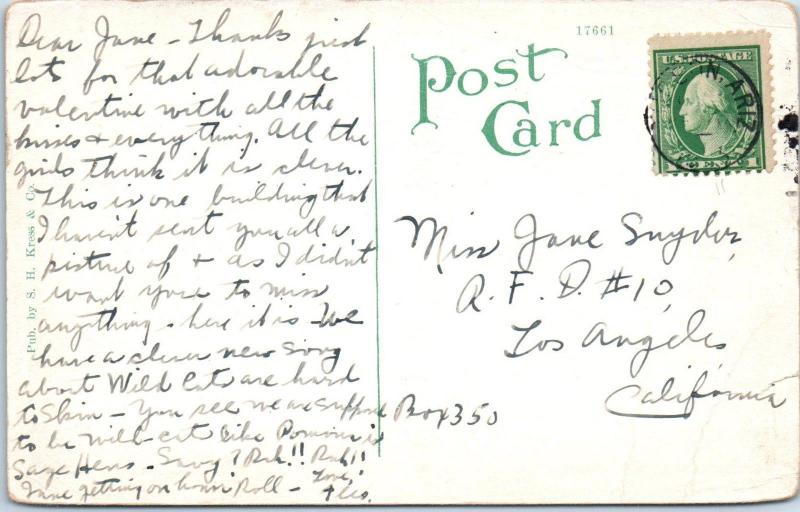 Dear Jane - Thanks just
lots for that adorable
valentine with all the
kisses & everything. All the
girls think it is clever.
This is one building that
I haven't sent you all a
picture of & as I didn't
want you to miss
anything - here it is - We
have a clever new song
about Wild Cat are hard
to Skin - You see we are suppose
to be wild-cat like Pomona is
Sage Hens. Savy? Rah!! Rah!!
Love,
Jane getting on honor Roll -
Pub. by S. H. Kress & Co.
17661
Post
Card
U.S. POSTAGE
ARIZ
Miss Jane Snyder,
R. F. D. #10,
Los Angeles
California
Box 350